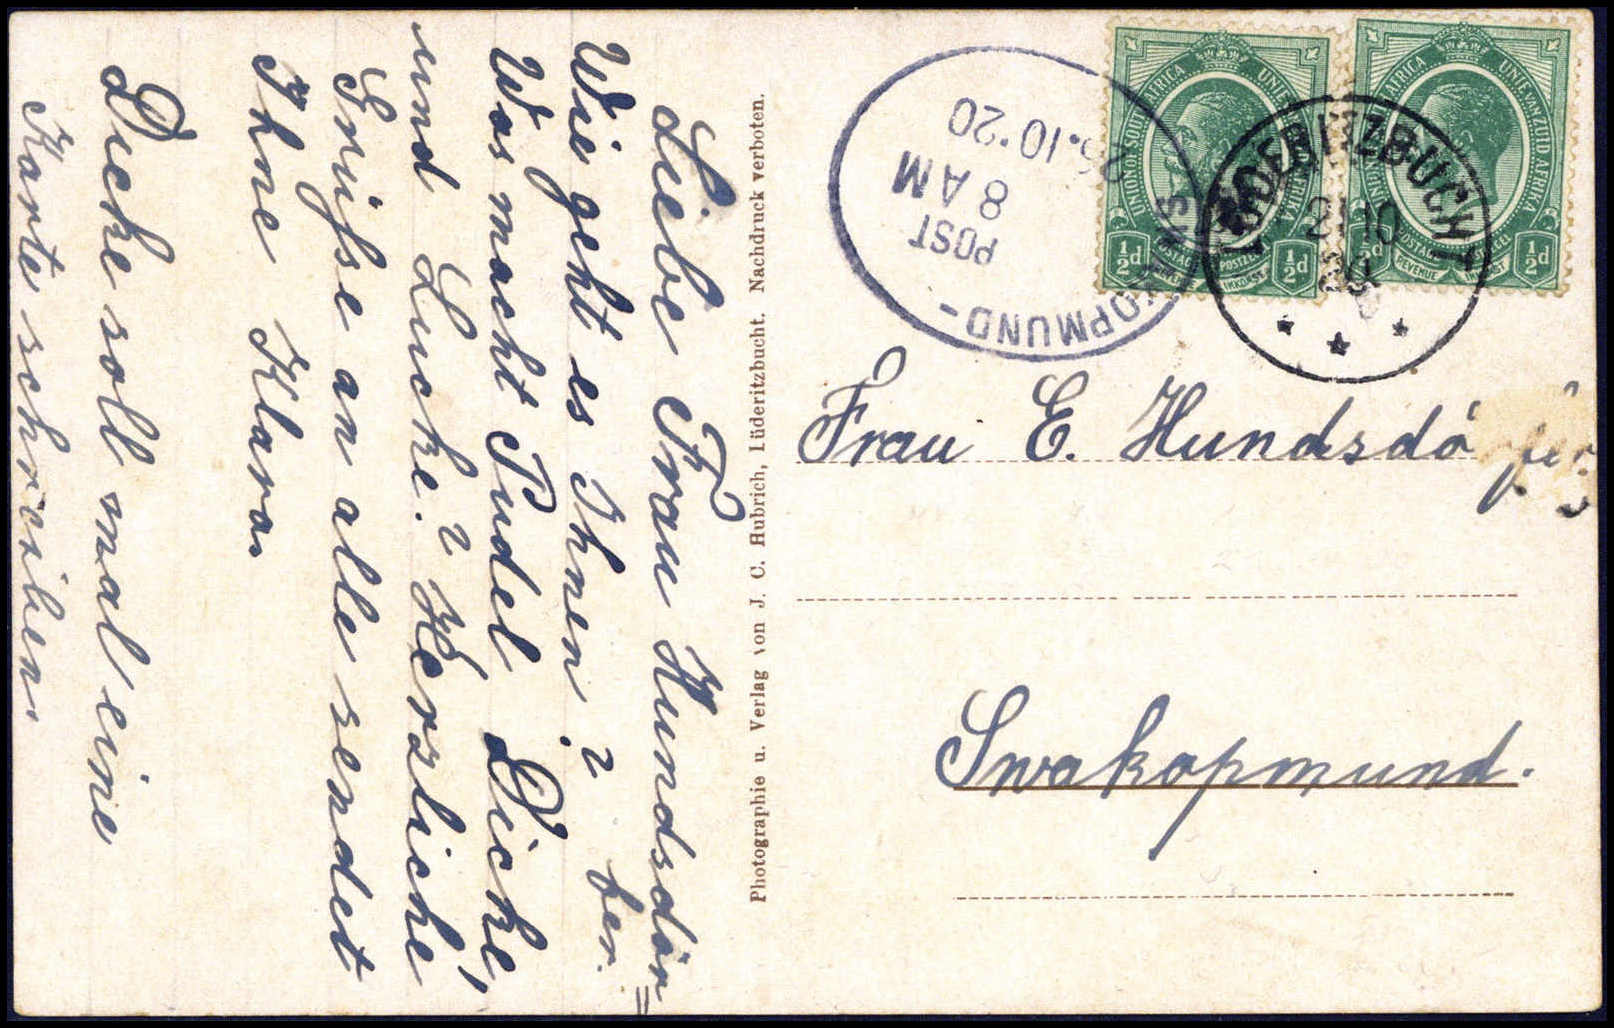 Liebe Frau Hundsdör=
fer.
Wie geht es Ihnen?
Was macht Pudel Dicke,
und Lucke? Herzliche
Grüsse an alle sendet
Ihne Klara.
Dicke soll mal eine
Karte schreiben.
Photographie u. Verlag von J. C. Hubrich, Lüderitzbucht. Nachdruck verboten.
SWAKOPMUND
POST
8 AM
10·20
UNION OF SOUTH AFRICA
UNIE VAN ZUID AFRIKA
POSTAGE
POSTZEGEL
½d
½d
UNION OF SOUTH AFRICA
UNIE VAN ZUID AFRIKA
POSTAGE
REVENUE
½d
½d
LÜDERITZBUCHT
21 10
20
Frau E. Hundsdörfer
Swakopmund.